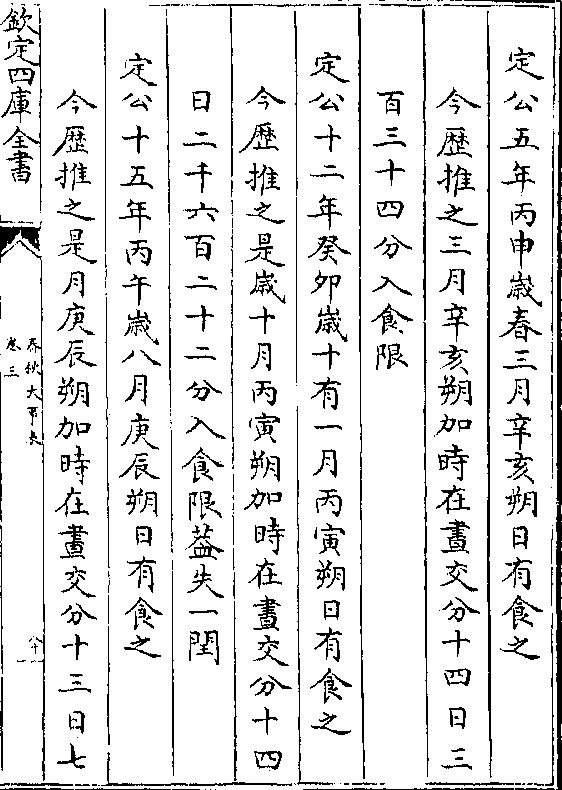 定公五年丙申歳春三月辛亥朔日有食之
今歴推之三月辛亥朔加時在晝交分十四日三
百三十四分入食限
定公十二年癸卯歳十有一月丙寅朔日有食之
今歴推之是歳十月丙寅朔加時在晝交分十四
日二千六百二十二分入食限葢失一閏
定公十五年丙午歳八月庚辰朔日有食之
今歴推之是月庚辰朔加時在晝交分十三日七
欽定四庫全書
春秋大事表
卷三